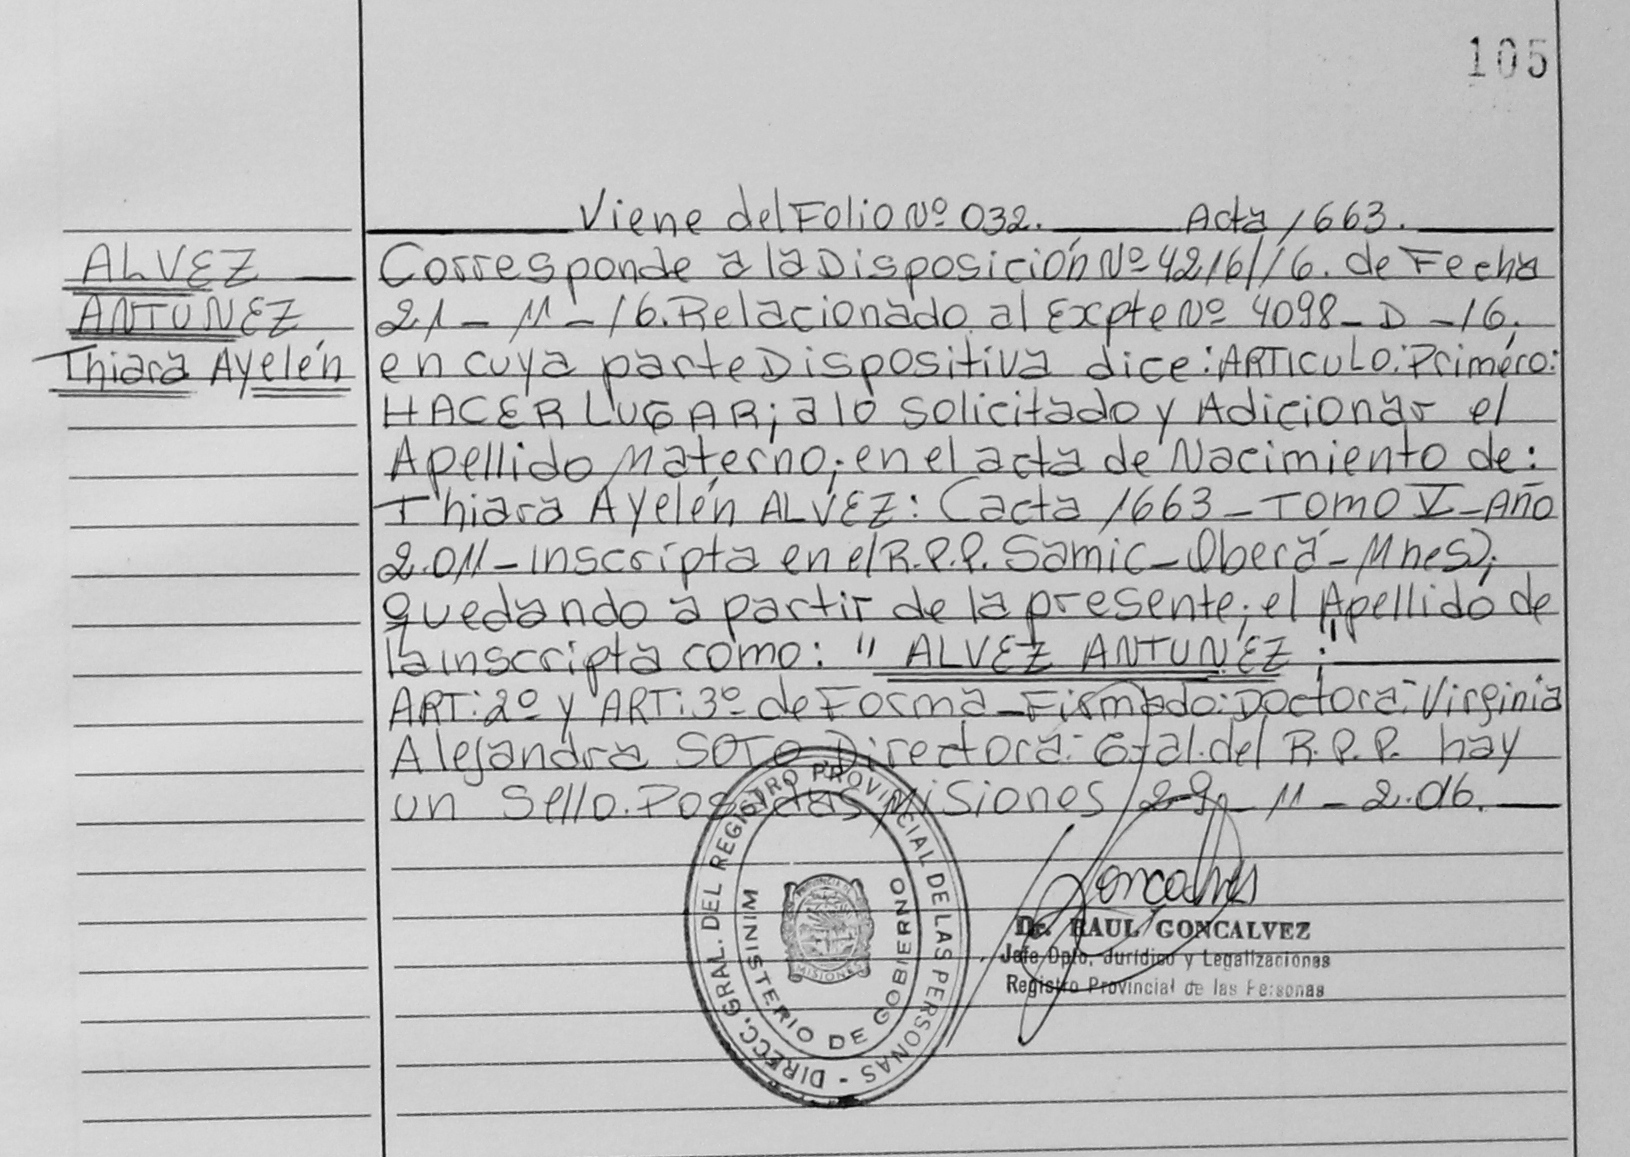 105
Viene del Folio Nº 032. Acta 1663.
ALVEZ
ANTUNEZ
Thiara Ayelén
Corresponde a la Disposición Nº 4216/16. de Fecha
21 - 11 - 16. Relacionado al Expte Nº 4098 - D - 16,
en cuya parte Dispositiva dice: ARTICULO: Priméro:
HACER LUGAR; a lo solicitado y Adicionar el
Apellido Materno; en el acta de Nacimiento de:
Thiara Ayelén ALVEZ: (acta 1663 - TOMO V - Año
2.011 - inscripta en el R.P.P. Samic - Oberá - Mnes);
quedando a partir de la presente; el Apellido de
la inscripta como: " ALVEZ ANTUNEZ ;"
ART: 2º y ART: 3º de Forma - Firmado: Doctora: Virginia
Alejandra SOTO Directora: Gral. del R.P.P. hay
un Sello. Posadas Misiones, 29 - 11 - 2.016.
DIRECC. GRAL. DEL REGISTRO PROVINCIAL DE LAS PERSONAS -
MINISTERIO DE GOBIERNO
MISIONES
Goncalves
Dr. RAUL GONCALVEZ
Jefe Dpto. Jurídico y Legalizaciones
Registro Provincial de las Personas